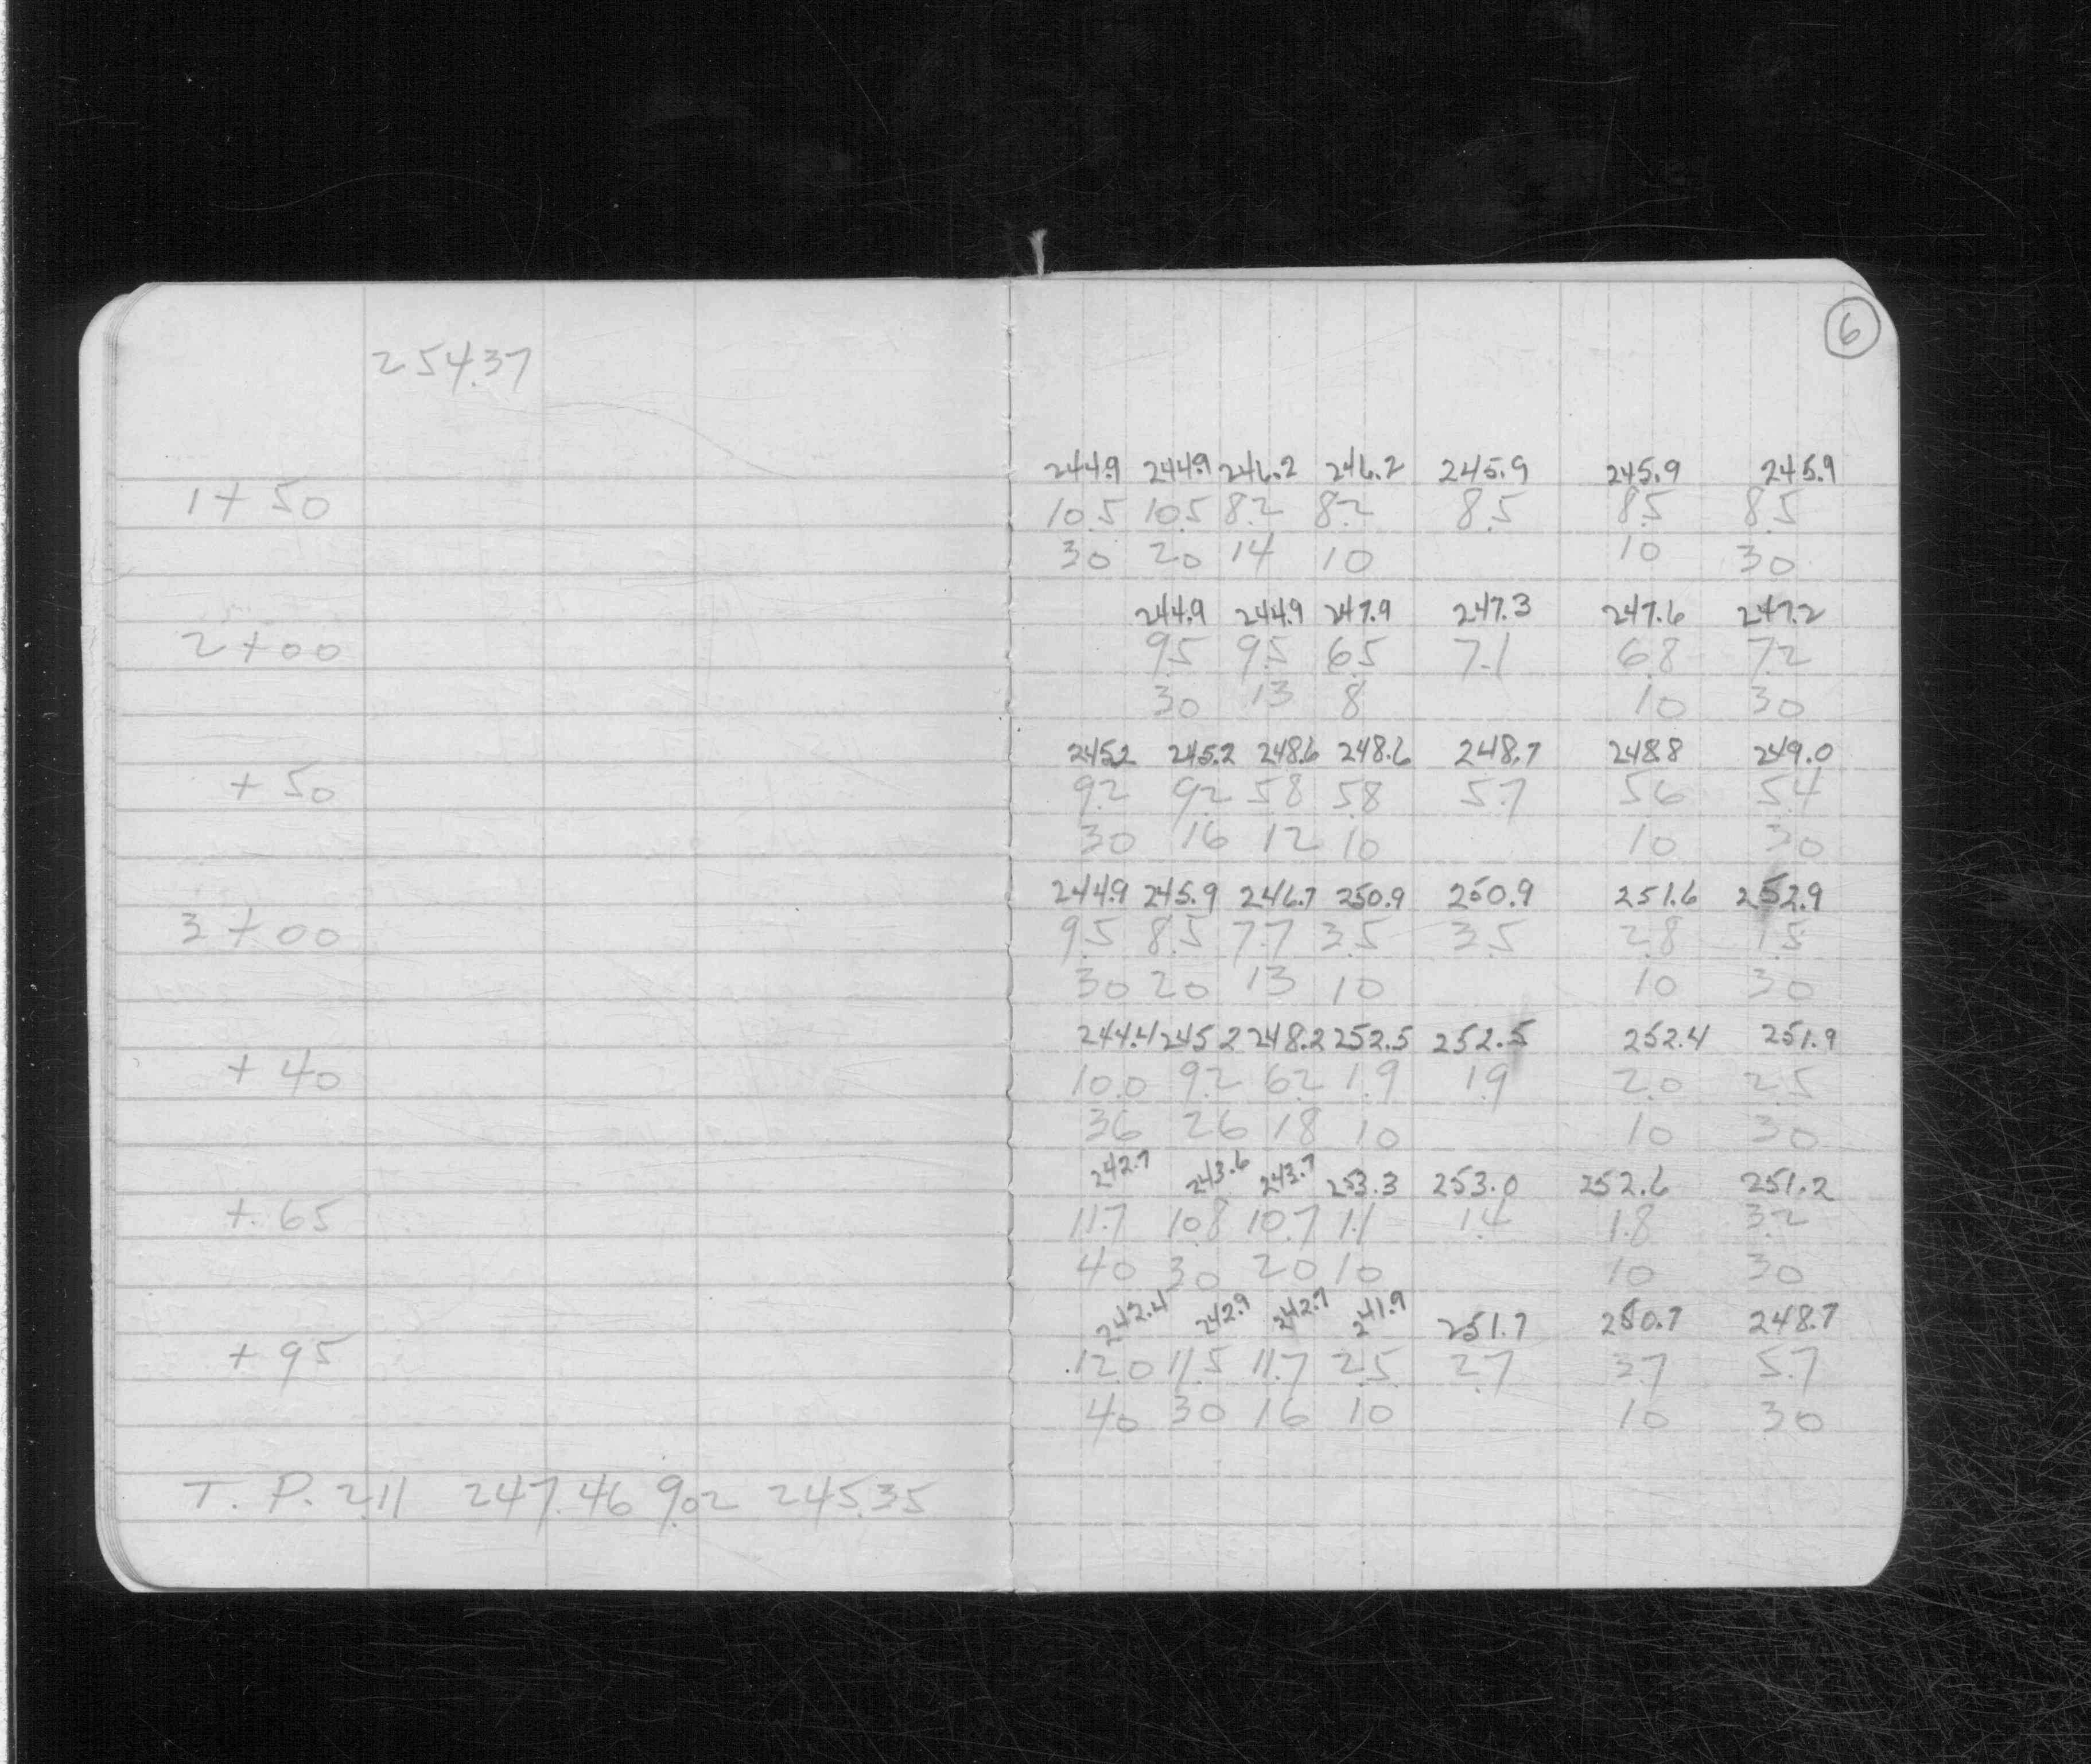 6
254.37
244.9 244.9 246.2 246.2 245.9 245.9 245.9
1+50 10.5 10.5 8.2 8.2 8.5 8.5 8.5
30 20 14 10 10 30
244.9 244.9 247.9 247.3 247.6 247.2
2+00 9.5 9.5 6.5 7.1 6.8 7.2
30 13 8 10 30
245.2 245.2 248.6 248.6 248.7 248.8 249.0
+50 9.2 9.2 5.8 5.8 5.7 5.6 5.4
30 16 12 10 10 30
244.9 245.9 246.7 250.9 250.9 251.6 252.9
3+00 9.5 8.5 7.7 3.5 3.5 2.8 1.5
30 20 13 10 10 30
244.4 245.2 248.2 252.5 252.5 252.4 251.9
+40 10.0 9.2 6.2 1.9 1.9 2.0 2.5
36 26 18 10 10 30
242.7 243.6 243.7 253.3 253.0 252.6 251.2
+65 11.7 10.8 10.7 1.1 1.4 1.8 3.2
40 30 20 10 10 30
242.4 242.9 242.7 241.9 251.7 250.7 248.7
+95 12.0 11.5 11.7 2.5 2.7 3.7 5.7
40 30 16 10 10 30
T. P. 2.11 247.46 9.02 245.35